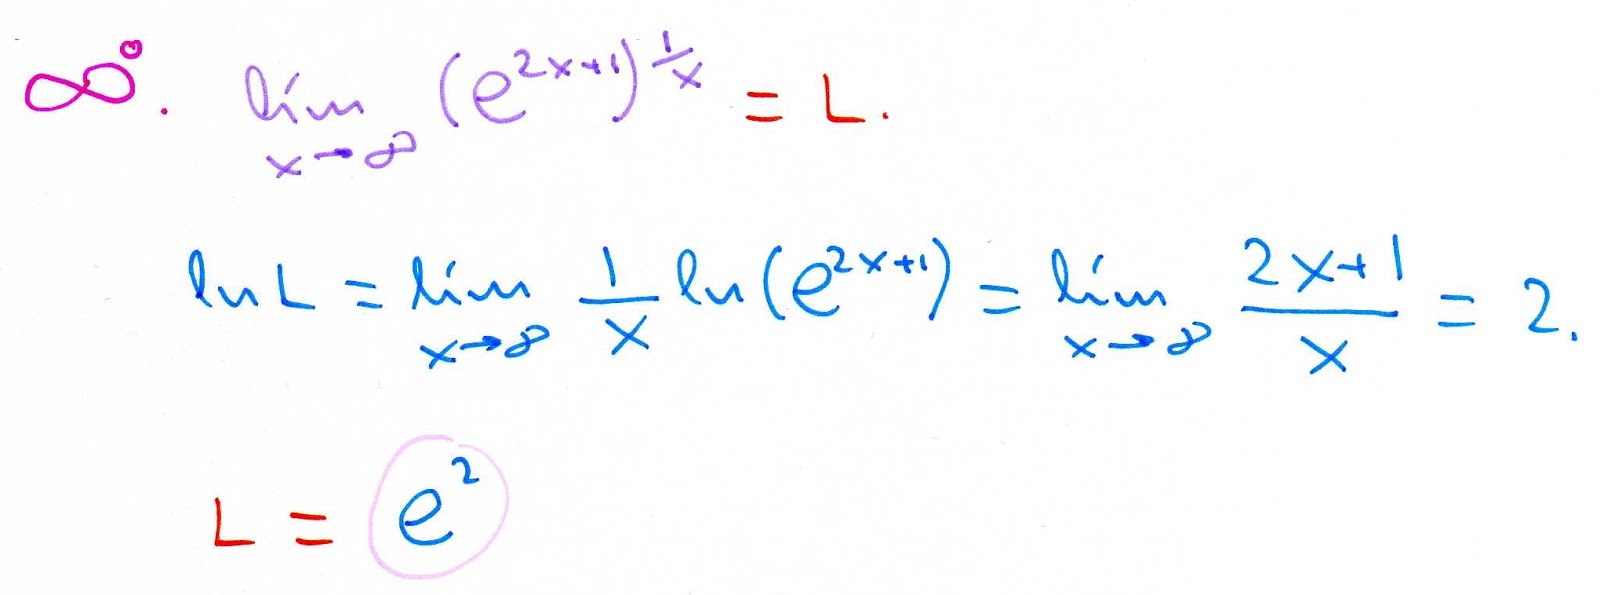 ∞⁰. lím_{x→∞} (e^{2x+1})^{1/x} = L.
ln L = lím_{x→∞} 1/x ln(e^{2x+1}) = lím_{x→∞} (2x+1)/x = 2.
L = e²